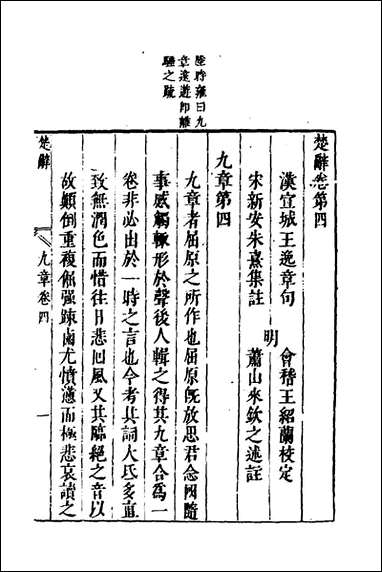 陸時雍曰九
章遠遊即離
騷之疏
楚辭卷第四
漢宣城王逸章句
會稽王紹蘭校定
明
宋新安朱熹集註
蕭山來欽之述註
九章第四
九章者屈原之所作也屈原旣放思君念國隨
事感觸輒形於聲後人輯之得其九章合爲一
卷非必出於一時之言也今考其詞大氐多直
致無潤色而惜往日悲回風又其臨絕之音以
故顛倒重複倔强踈鹵尤憤懣而極悲哀讀之
楚辭 九章卷四 一